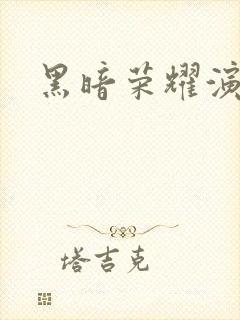 黑暗荣耀演
塔吉克